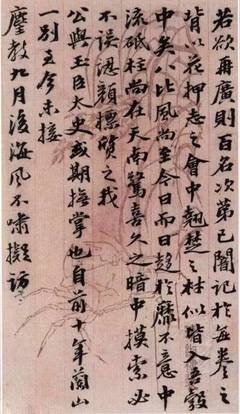 若欲再廣則百名次第已闇記於每卷之
背以花押志之會中翹楚之材似皆入吾彀
中矣八比風尚至今日而日趨於靡不意中
流砥柱尚在天南驚喜久之暗中摸索必
不誤認顏標質之我
公與玉臣太史或期撫掌也自前十年蘭山
一別至今未接
麈教九月後海風不嘯擬訪